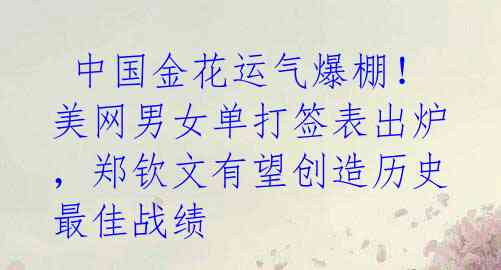 中国金花运气爆棚！
美网男女单打签表出炉
，郑钦文有望创造历史
最佳战绩